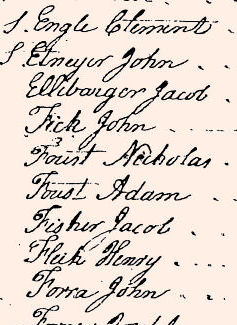 S. Engle Clement
S. Etneyer John
Ellibarger Jacob
Fick John
Foust Nicholas
Foust Adam
Fisher Jacob
Fleik Henry
Forra John